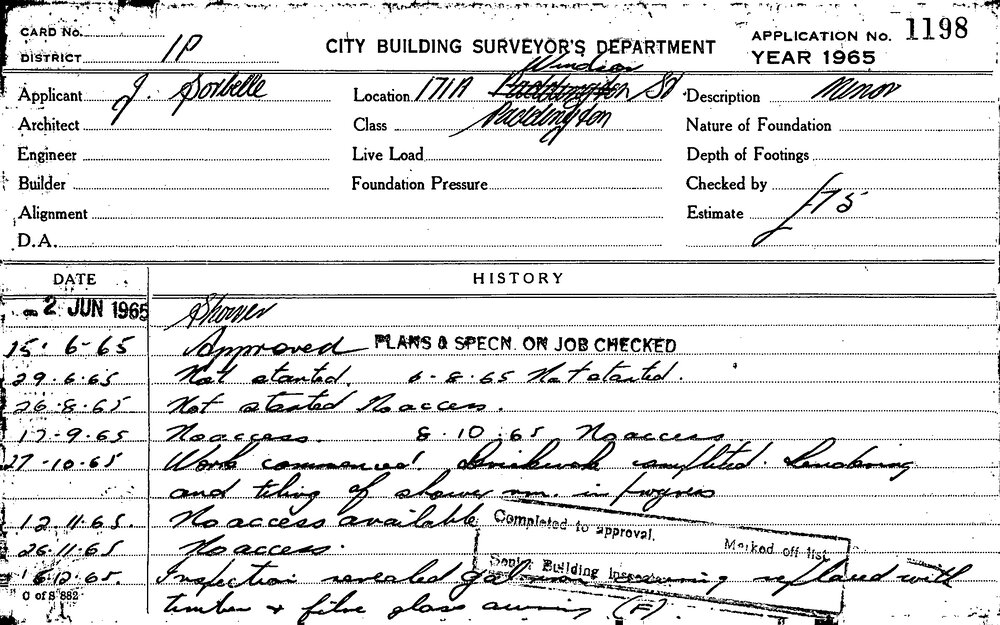 CARD No.
DISTRICT 1P
CITY BUILDING SURVEYOR'S DEPARTMENT
APPLICATION No. 1198
YEAR 1965
Applicant J. Sorbelle
Architect
Engineer
Builder
Alignment
D.A.
Windsor
Location 171A Paddington St
Paddington
Class
Live Load
Foundation Pressure
Description Minor
Nature of Foundation
Depth of Footings
Checked by
Estimate £75
DATE HISTORY
2 JUN 1965 Shower
15.6-65 Approved PLANS & SPECN. ON JOB CHECKED
29.6.65 Not started. 6-8.65 Not started.
26.8.65 Not started No access.
17-9.65 No access. 8.10.65 No access
27-10.65 Work commenced. Brickwork completed. Rendering
and tiling of shower rm. in progress
12.11.65. No access available
26.11.65 No access.
16.12.65. Inspection revealed awning replaced with
timber & fibre glass awning (F).
Completed to approval.
Marked off list
Senior Building Inspector
C of S 882